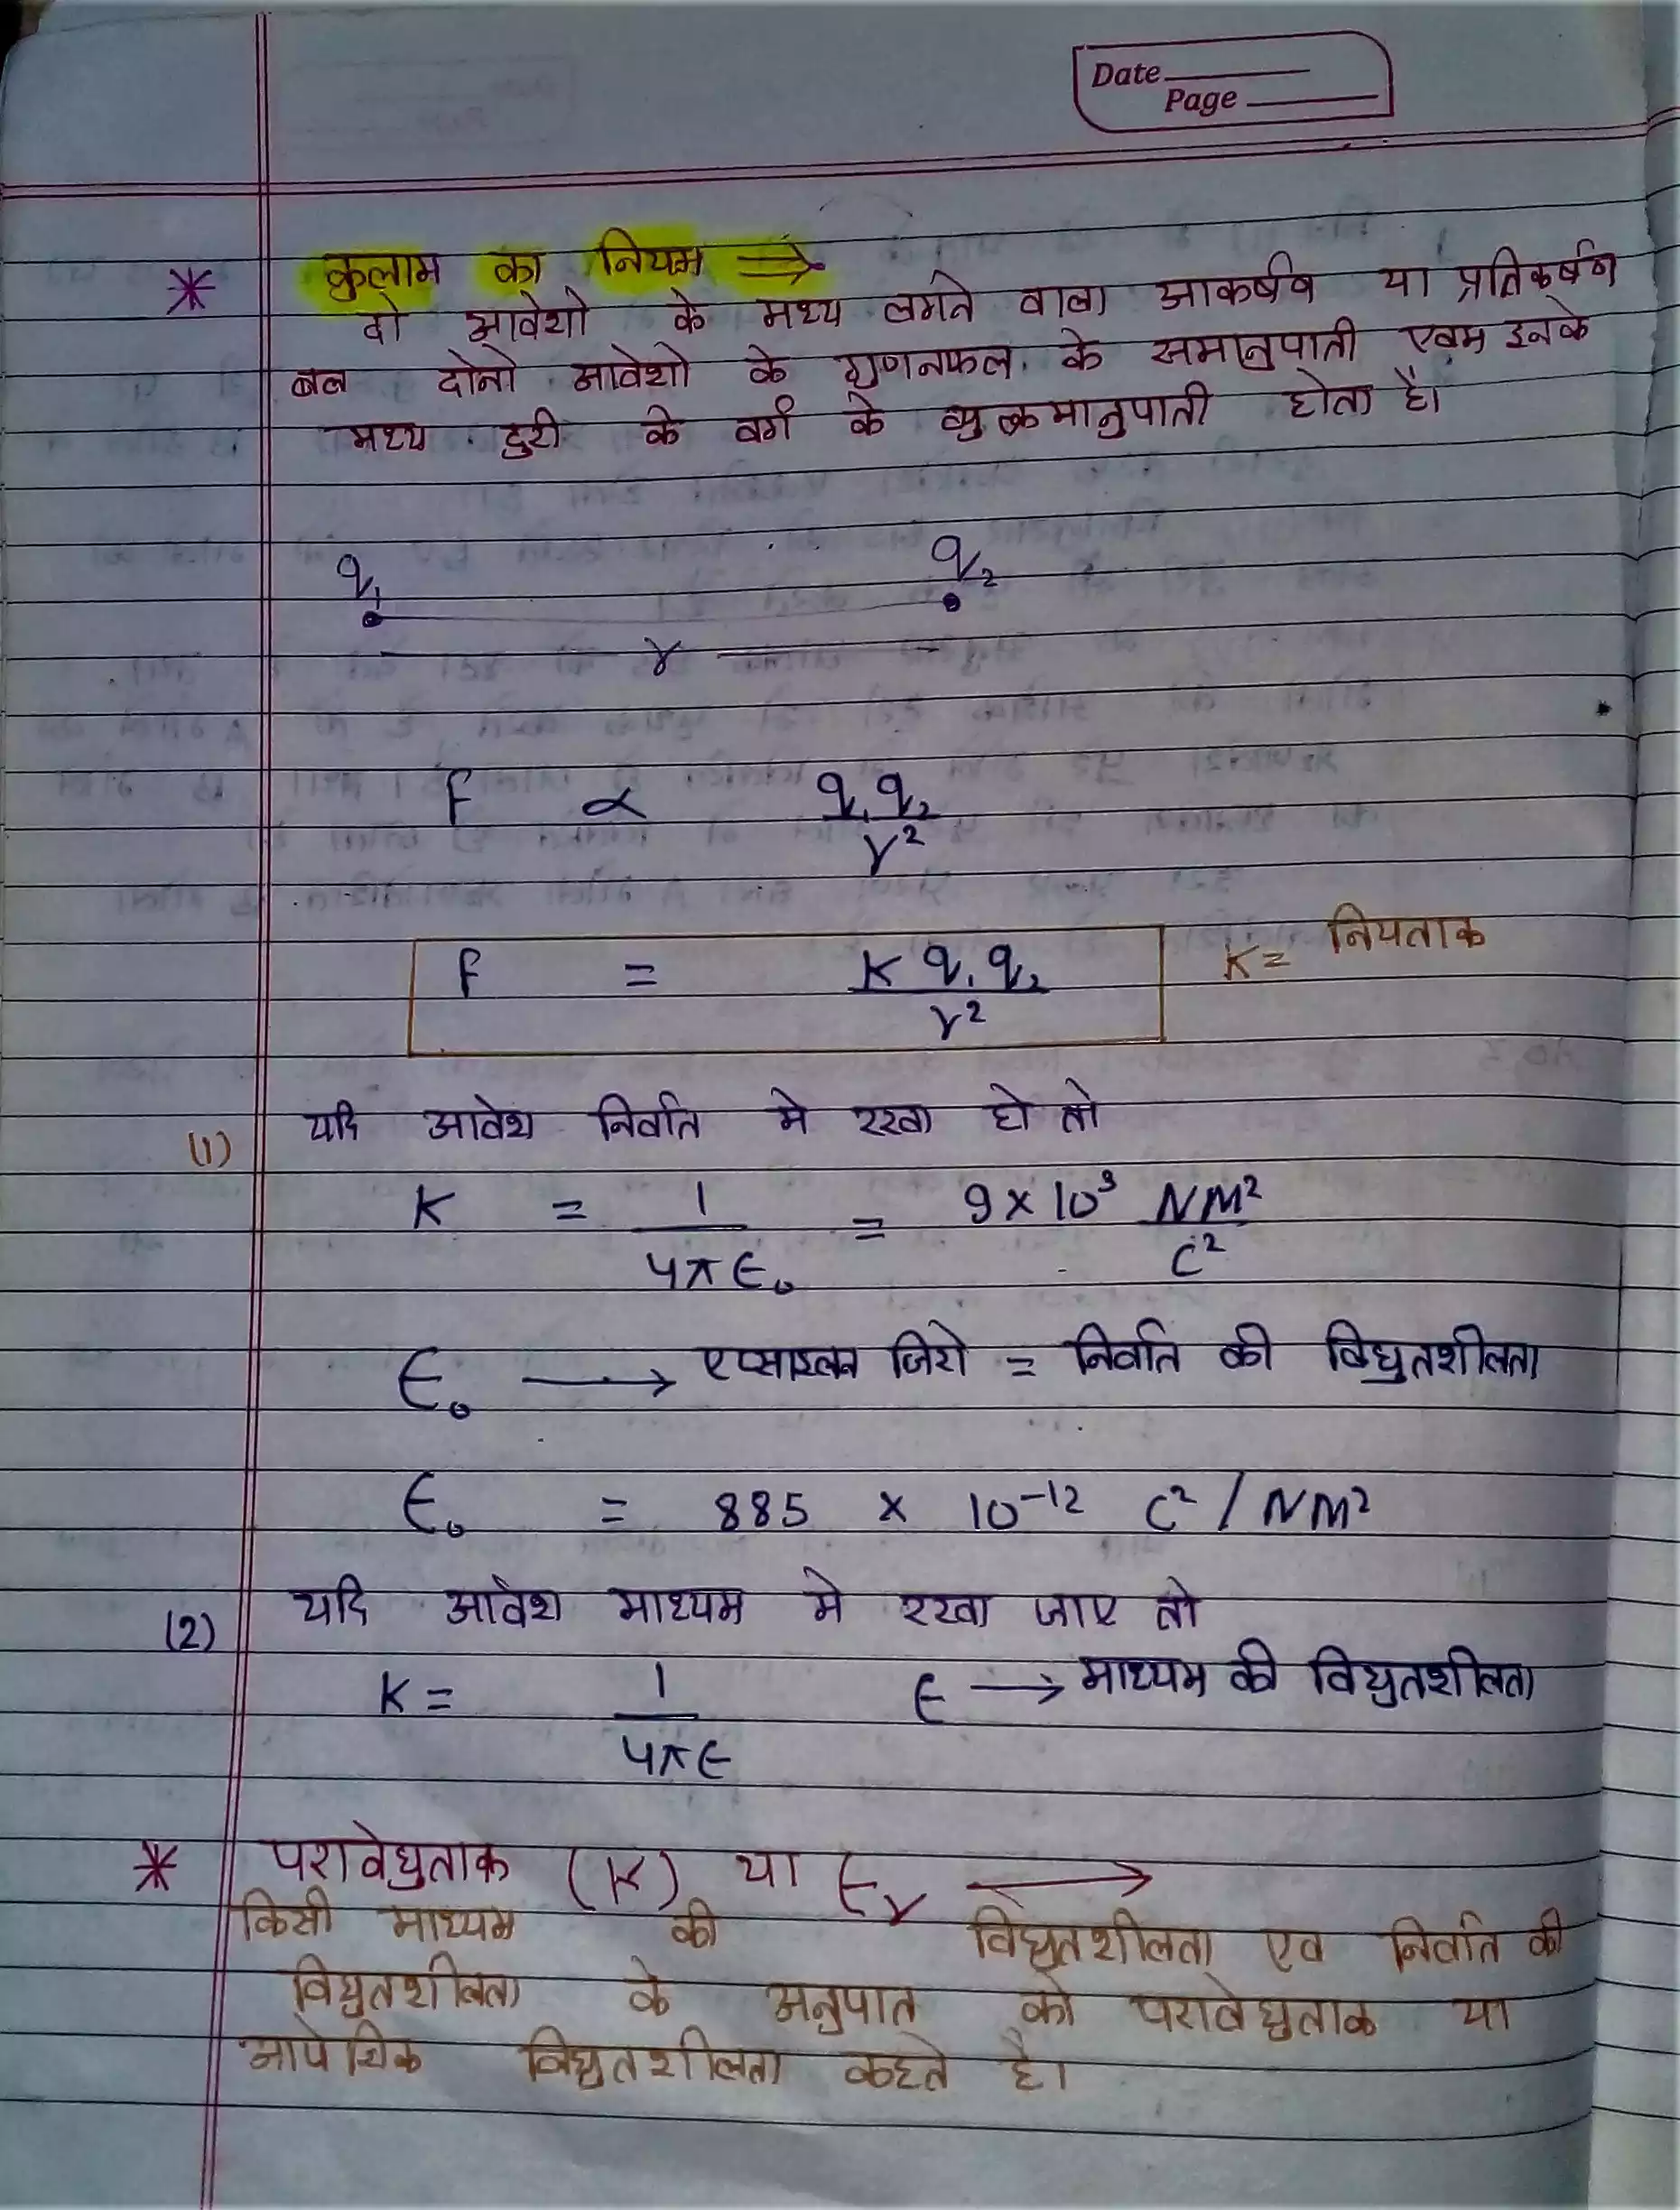 Date
Page
* कुलाम का नियम ⇒
दो आवेशो के मध्य लगने वाला आकर्षण या प्रतिकर्षण
बल दोनो आवेशो के गुणनफल के समानुपाती एवम इनके
मध्य दुरी के वर्ग के व्युत्क्रमानुपाती होता है।
q₁ q₂
r
F ∝ q₁q₂
r²
F = K q₁ q₂ K = नियताक
r²
(1) यदि आवेश निर्वात मे रखा हो तो
K = 1/4πϵ₀ = 9 × 10⁹ NM²/C²
ϵ₀ → एप्साइलन जिरो = निर्वात की विद्युतशीलता
ϵ₀ = 885 × 10⁻¹² C² / NM²
(2) यदि आवेश माध्यम मे रखा जाए तो
K = 1/4πϵ ϵ → माध्यम की विद्युतशीलता
* परावेद्युताक (K) या ϵr →
किसी माध्यम की विद्युतशीलता एव निर्वात की
विद्युतशीलता के अनुपात को परावेद्युताक या
आपेक्षिक विद्युतशीलता कहते है।